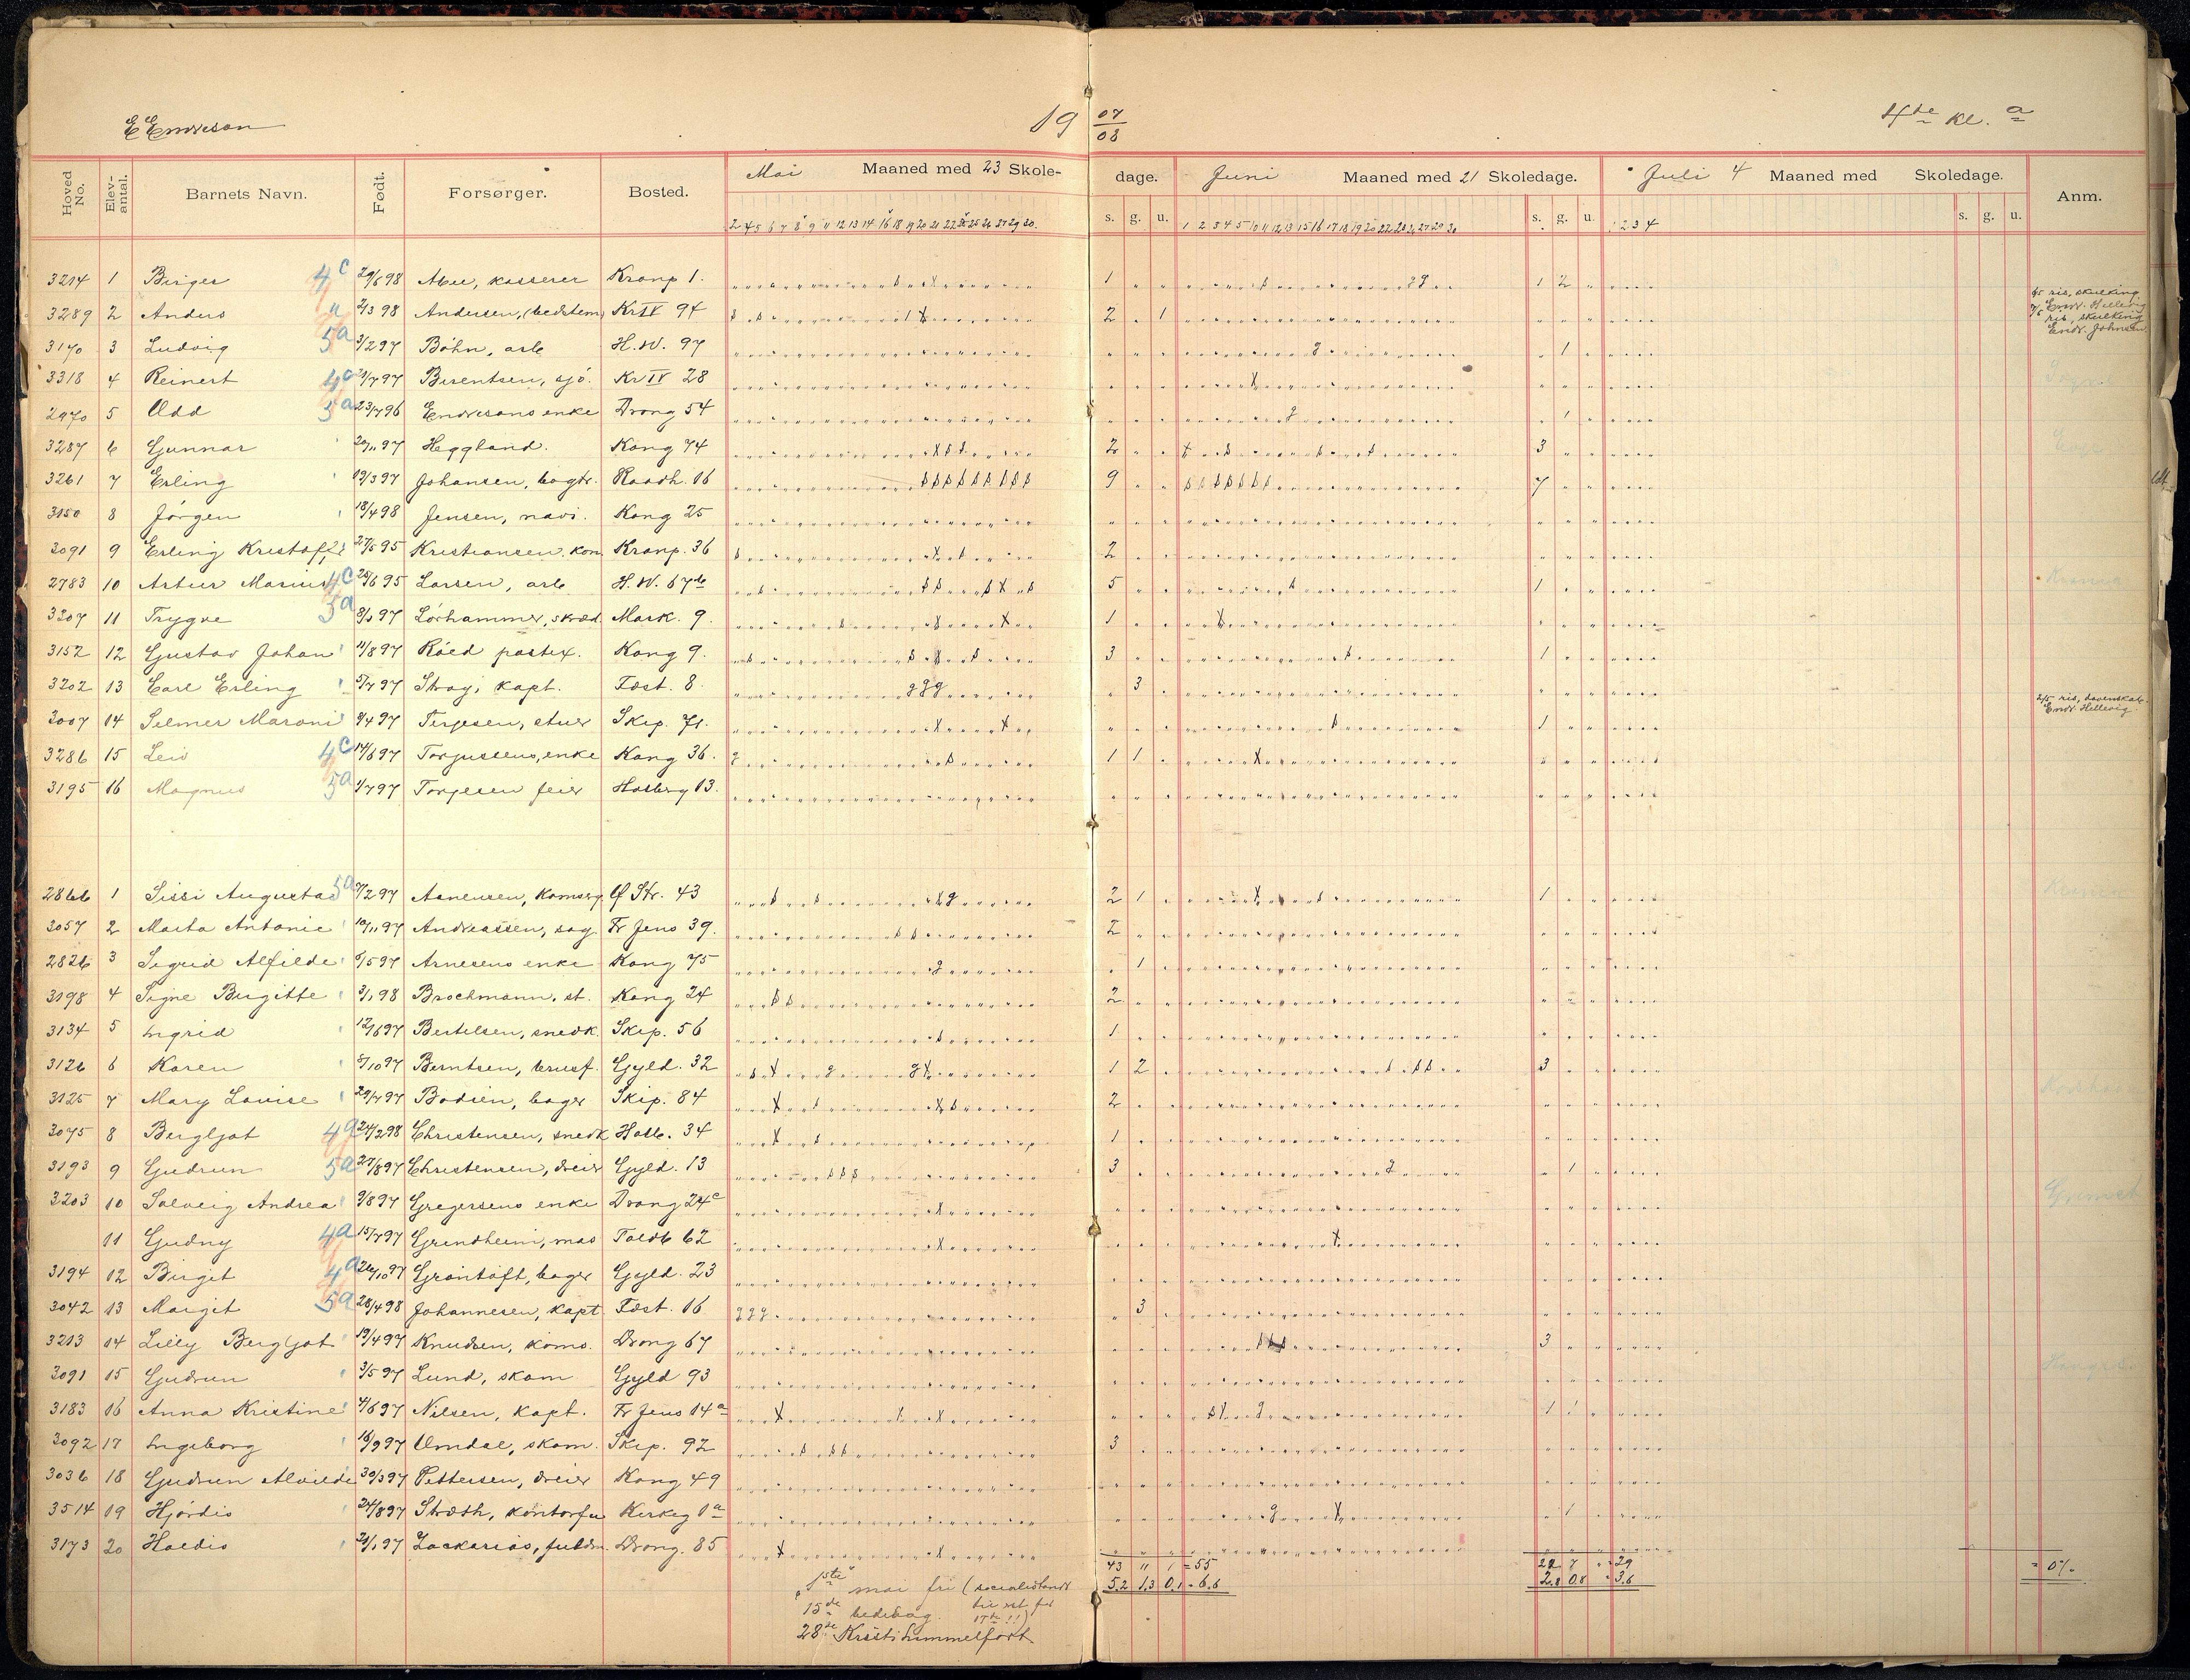 E Endresen 19 07/08 4de kl. a
Hoved No. Elev-antal. Barnets Navn. Født. Forsørger. Bosted. Mai Maaned med 23 Skole-dage. Juni Maaned med 21 Skoledage. Juli 4 Maaned med Skoledage. Anm.
s. g. u. s. g. u. s. g. u.
3214 1 Birger 4c 29/6 98 kasserer Kronp 1. 1 1 2
3289 2 Anders 2/3 98 Andersen, (bedstem) Kr IV 94 2 1
3170 3 Ludvig 5a 3/2 97 Bøhn, arb H.W. 97 1
3318 4 Reinert 4c 97 Berentsen, sjø. Kr IV 28
2970 5 Odd 5a 23/7 96 Endresens enke Drong 54 1
3287 6 Gunnar 20/11 97 Heggland. Kong 74 2 3
3261 7 Erling 19/3 97 Johansen, bogtr. Raadh. 16 9 7
3150 8 Jørgen 18/4 98 Jensen, navi. Kong 25
3091 9 Erling Kristoffer 27/5 95 Kristiansen. kon. Kronp. 36 2
2783 10 Artur Marius 4c 25/6 95 Larsen, arb H.W. 67 5 1
3207 11 Trygve 5a 8/3 97 Lörhammer, skræd. Mark. 9. 1
3152 12 Gustav Johan 11/8 97 Röed postex. Kong 9. 3 1
3202 13 Carl Erling 5/7 97 kapt. Fæst. 8. 3
3007 14 Selmer Maroni 9/4 97 Terjesen, stuer Skip. 71. 1
3286 15 Leiv 4c 14/6 97 Torjussens, enke Kong 36. 1 1
3195 16 Magnus 5a 4/7 97 Torjesen feier Holberg 13.
2866 1 Sissi Augusta 5a 2/2 97 Aanensen, Ø Str. 43 2 1 1
3057 2 Marta Antonie 10/11 97 Andreassen, sag Fr Jens 39. 2
2826 3 Sigrid Alfilde 6/5 97 Arnesens enke Kong 75 1
3198 4 Signe Birgitte 3/1 98 Brochmann, st. Kong 24 2
3134 5 Ingrid 12/6 97 Bertelsen, snedk. Skip. 56 1
3126 6 Karen 5/10 97 Berntsen, brusf. Gyld. 32 1 2 3
3125 7 Mary Louise 29/7 97 Bodien, bager Skip. 84 2
3075 8 Bergljot 24/2 98 Christensen, snedk Holb. 34 1
3193 9 Gudrun 5a 27/8 97 Christensen, dreier Gyld. 13 3 1
3203 10 Solveig Andrea 9/8 97 Gregersens enke Drong 24c
11 Gudny 4a 15/7 97 Grundheim, mas Toldb 62
3194 12 Birgit 4a 26/10 97 Grøntoft, bager Gyld. 23
3042 13 Margit 5a 28/4 98 Johannesen, kapt. Fæst. 16 3
3213 14 Lilly Bergljot 19/4 97 Knudsen, koms. Drong 67 3
3091 15 Gudrun 3/5 97 Lund, skom Gyld 93
3183 16 Anna Kristine 4/6 97 Nilsen, kapt. Fr Jens 14a 1 1
3092 17 Ingeborg 16/9 97 Omdal, skom. Skip. 92 3
3036 18 Gudrun Alvilde 30/3 97 Pettersen, dreier Kong 49
3514 19 Hjørdis 24/8 97 Stræth, kontorfu Kirkeg 1a 1
3173 20 Haldis 21/1 97 Zackarias, fuldm. Drong. 85
43 11 1 = 55 22 7 = 29 = 0%
5.2 1.3 0.1 = 6.6 2.8 0.8 = 3.6
1ste mai fri (socialistandt
15de bededag. 17de !!)
28de Kristi himmelfart
4/5 ris, skulking
Endr. Hellevig
7/5 ris, skulking
Endr. Johnsen
Endr. Hellevig.